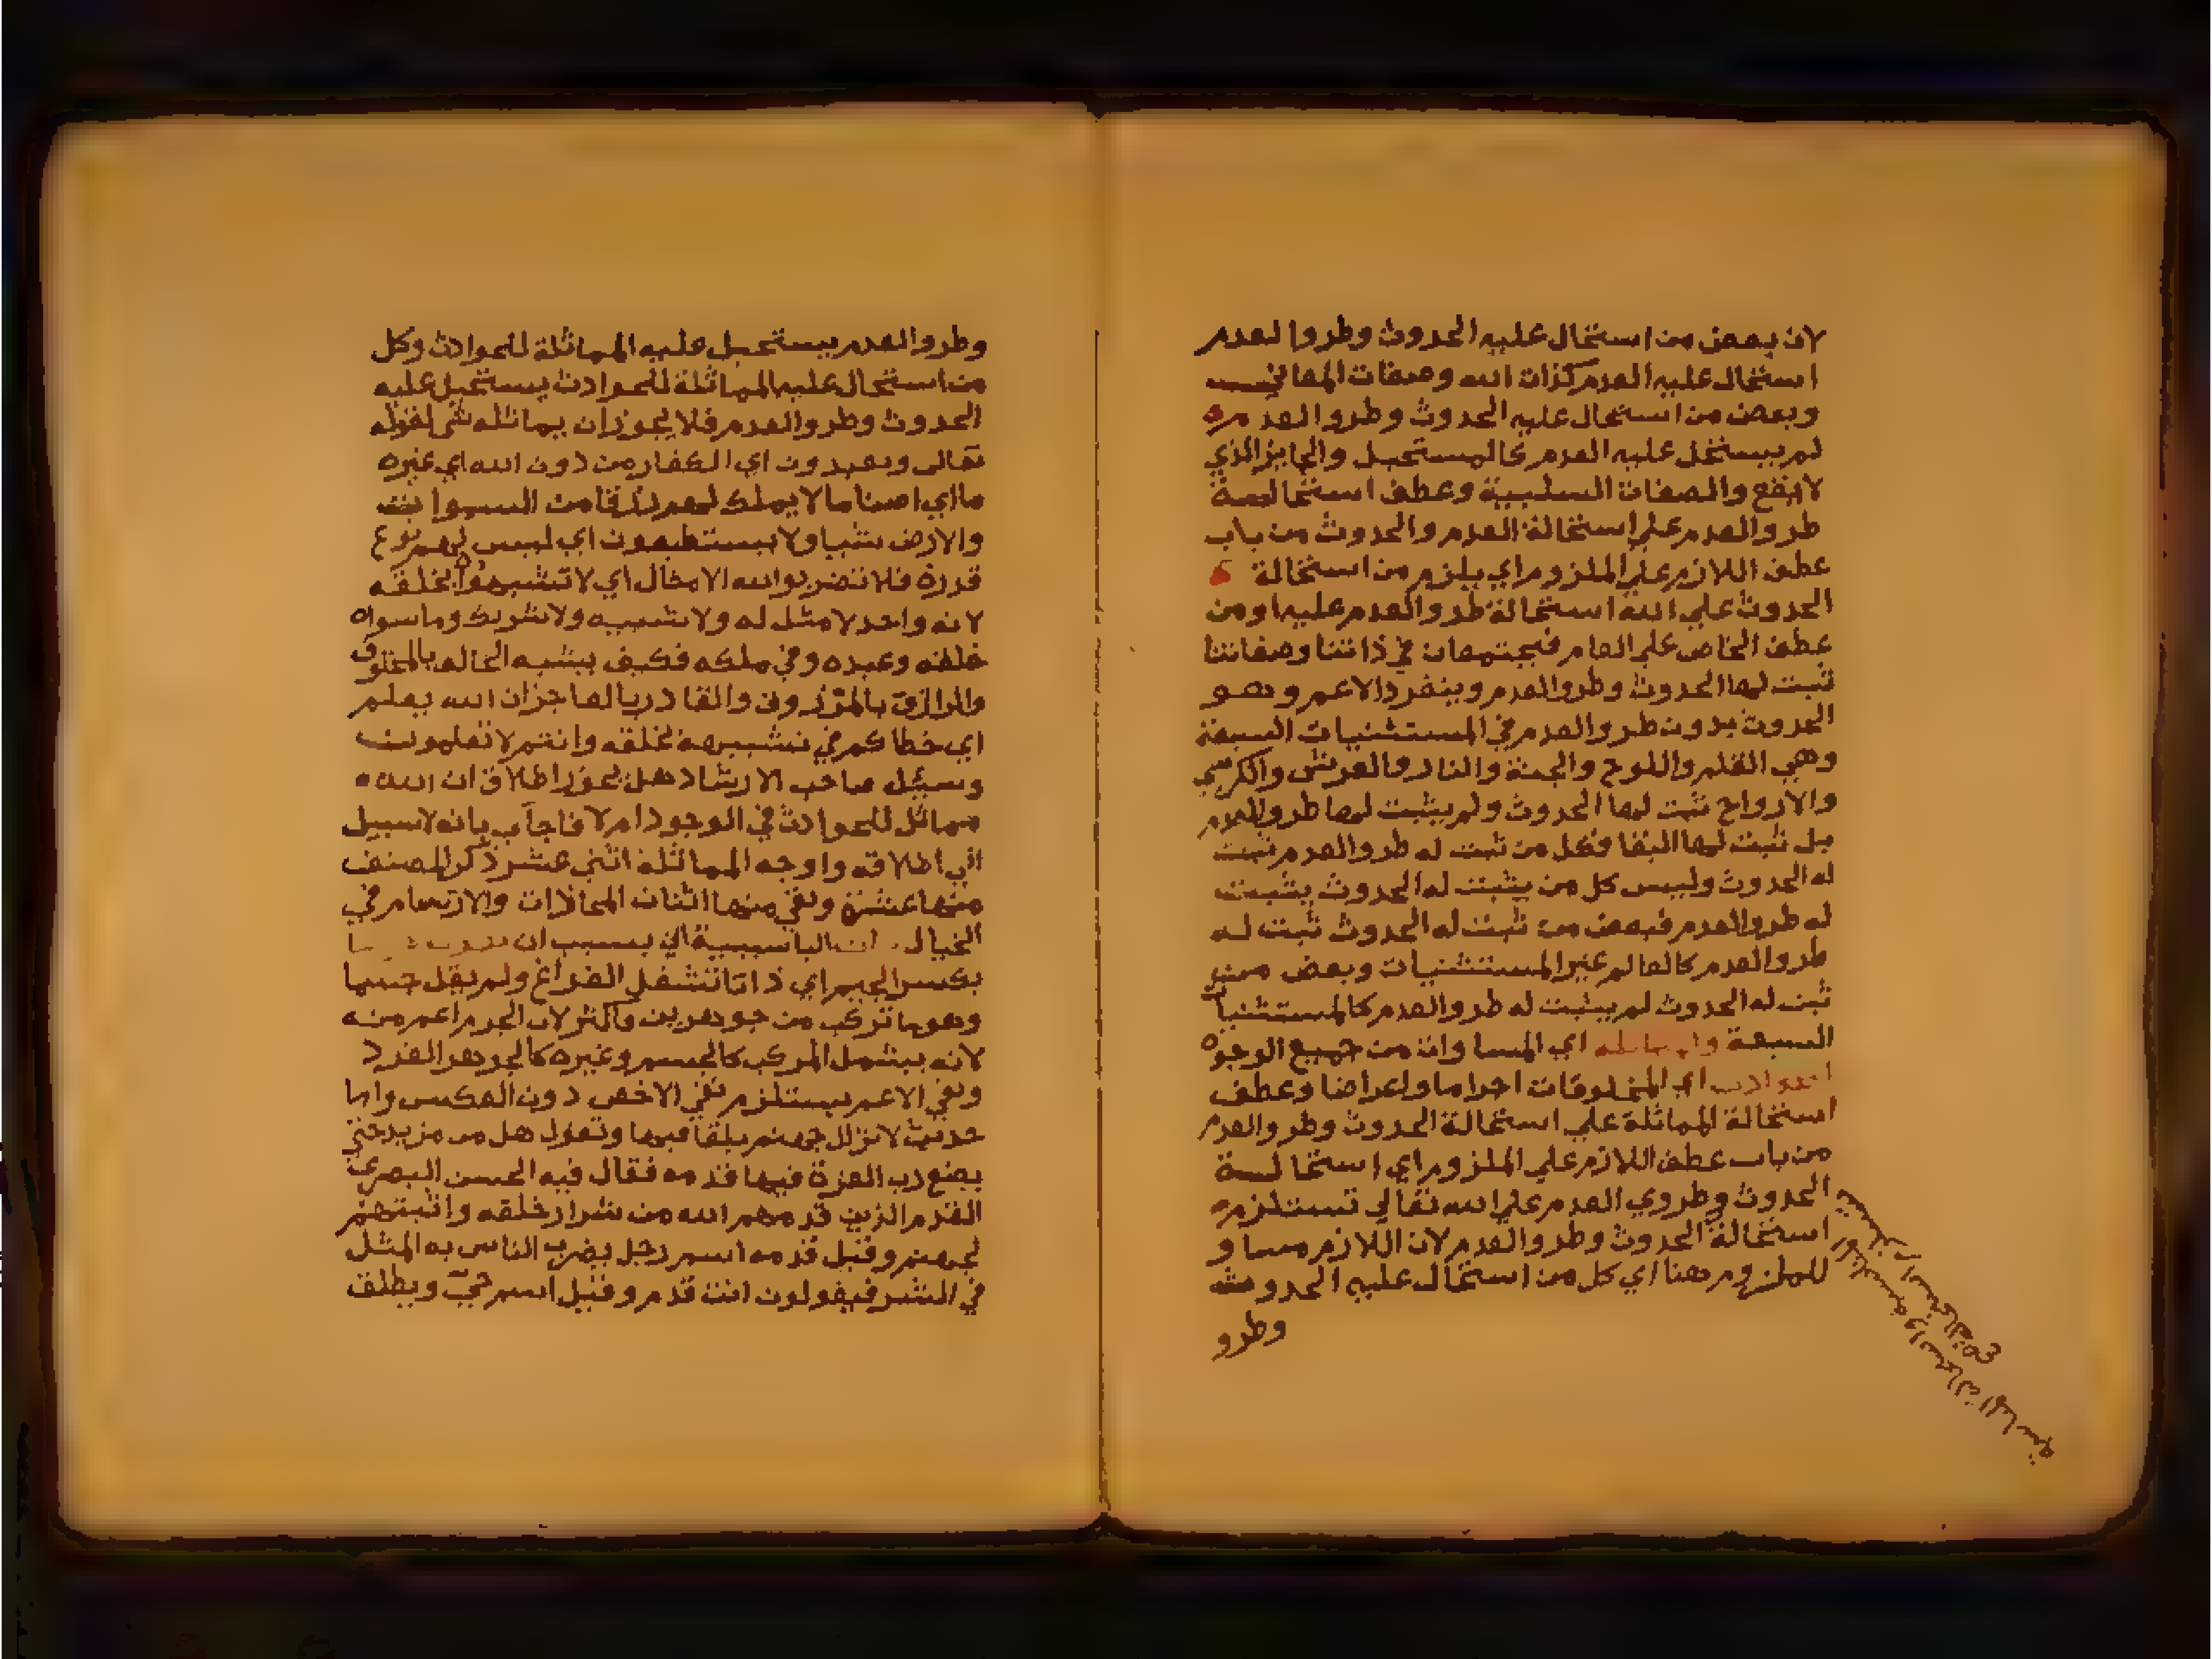 لان بعض من استحال عليه الحدوث وطروا لعدم
استحال عليه العدم كذات الله وصفات المعاني
وبعض من استحال عليه الحدوث وطروا العدم
لم يستحل عليه العدم كالمستحيل والجايز الذي
لا يقع والصفات السلبية وعطف استحالة
طروا لعدم علي استحالة العدم والحدوث من باب
عطف اللازم علي الملزوم اي يلزم من استحالة
الحدوث علي الله استحالة طروا لعدم عليه او من
عطف الخاص علي العام فيجتمعان في ذاتنا وصفاتنا
ثبت لها الحدوث وطروالعدم وينفرد الاعم وهو
الحدوث بدون طروالعدم في المستثنيات السبعة
وهي القلم واللوح والجنة والنار والعرش والكرسي
والارواح ثبت لها الحدوث ولم يثبت لها طروالعدم
بل ثبت لها البقا فكل من ثبت له طروالعدم ثبت
له الحدوث وليس كل من يثبت له الحدوث يثبت
له طروالعدم فبعض من ثبت له الحدوث ثبت له
طروالعدم كالعالم غير المستثنيات وبعض من
ثبت له الحدوث لم يثبت له طروالعدم كالمستثنيات
السبعة اي المساوات من جميع الوجوه
اي المخلوقات اجراما واعراضا وعطف
استحالة المماثلة علي استحالة الحدوث وطروالعدم
من باب عطف اللازم علي الملزوم اي استحالة
الحدوث وطروي العدم علي الله تعالي تستلزم
استحالة الحدوث وطروالعدم لان اللازم مساو
للملزوم هنا اي كل من استحال عليه الحدوث
وطرو
وطروالعدم يستحيل عليه المماثلة للحوادث وكل
من استحال عليه المماثلة للحوادث يستحيل عليه
الحدوث وطروالعدم فلا يجوز ان يماثله شي لقوله
تعالى ويعبدون اي الكفار من دون الله اي غيره
ما اي اصناما لا يملك لهم رزقا من السموات
والارض شيا ولا يستطيعون اي ليس لهم نوع
قدرة فلا تضربوا لله الامثال اي لا تشبهوا بخلقه
لانه واحد لا مثل له ولا شبيه ولا شريك وما سواه
خلقه وعبده وفي ملكه فكيف يشبه الخالق بالمخلوق
والرازق بالمرزوق والقادر بالعاجز ان الله يعلم
اي خطاكم في تشبيهه بخلقه وانتم لا تعلمون
وسئل صاحب الارشاد هل يجوز اطلاق ان الله
مماثل للحوادث في الوجود ام لا فاجاب بانه لا سبيل
الي اطلاقه واوجه المماثلة اثني عشر ذكر المصنف
منها عشرة وبقي منها اثنان المحاذات والارتسام في
الخيال البا سببية اي بسبب ان
بكسر الجيم اي ذاتا تشغل الفراغ ولم يقل جسما
وهو ما تركب من جوهرين واكثر لان الجرم اعم منه
لانه يشمل المركب كالجسم وغيره كالجوهر الفرد
ونفي الاعم يستلزم نفي الاخص دون العكس واما
حديث لا تزال جهنم يلقا فيها وتقول هل من مزيد حتي
يضع رب العزة فيها قدمه فقال فيه الحسن البصري
القدم الذين قدمهم الله من شرار خلقه واثبتهم
لجهنم وقيل قدمه اسم رجل يضرب الناس به المثل
في الشر فيقولون انت قدم وقيل اسم حي ويطلق